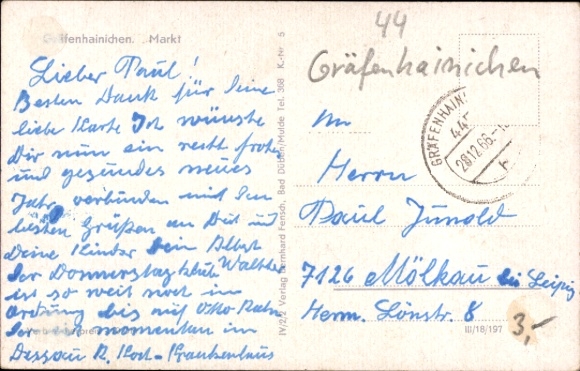 Gräfenhainichen. Markt
Lieber Paul!
Besten Dank für Deine
liebe Karte Ich wünsche
Dir nun ein recht frohes
und gesundes neues
Jahr, verbunden mit den
besten Grüßen an Dich und
Deine Kinder Dein Albert
der Donnerstag Walther
ist so weit noch in
Ordnung bis auf Otto
der ist momentan im
Dessau Krankenhaus
IV/2,2 Verlag Bernhard Fensch, Bad Düben/Mulde Tel. 368 K.-Nr 5
44
Gräfenhainichen
GRÄFENHAINI
445
28.12.66
h
An
Herrn
Paul Junold
7126 Mölkau bei Leipzig
Herm. Lönstr. 8
III/18/197
3,-